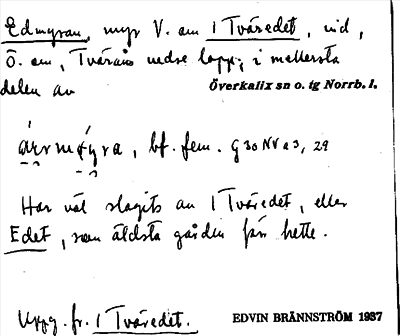 Edmyran, myr V. om 1 Tväredet, vid,
Ö. om, Tväråns nedre lopp, i mellersta
delen av Överkalix sn o. tg Norrb. l.
bf. fem. G 30 NV a 3, 29
Har väl slagits av 1 Tväredet, eller
Edet, som äldsta gården förr hette.
Uppg. fr. 1 Tväredet. EDVIN BRÄNNSTRÖM 1937